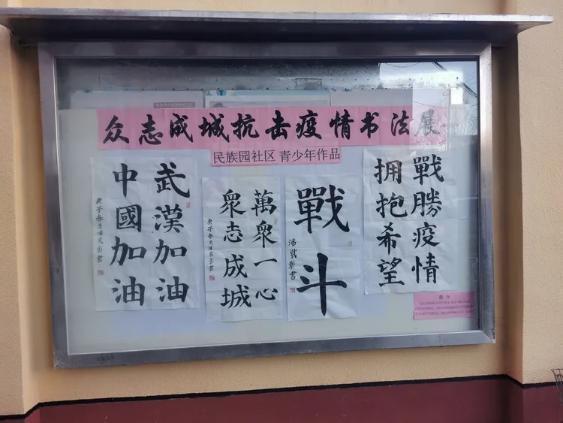 众志成城抗击疫情书法展
民族园社区 青少年作品
武漢加油
中國加油
萬衆一心
衆志成城
戰斗
戰勝疫情
拥抱希望